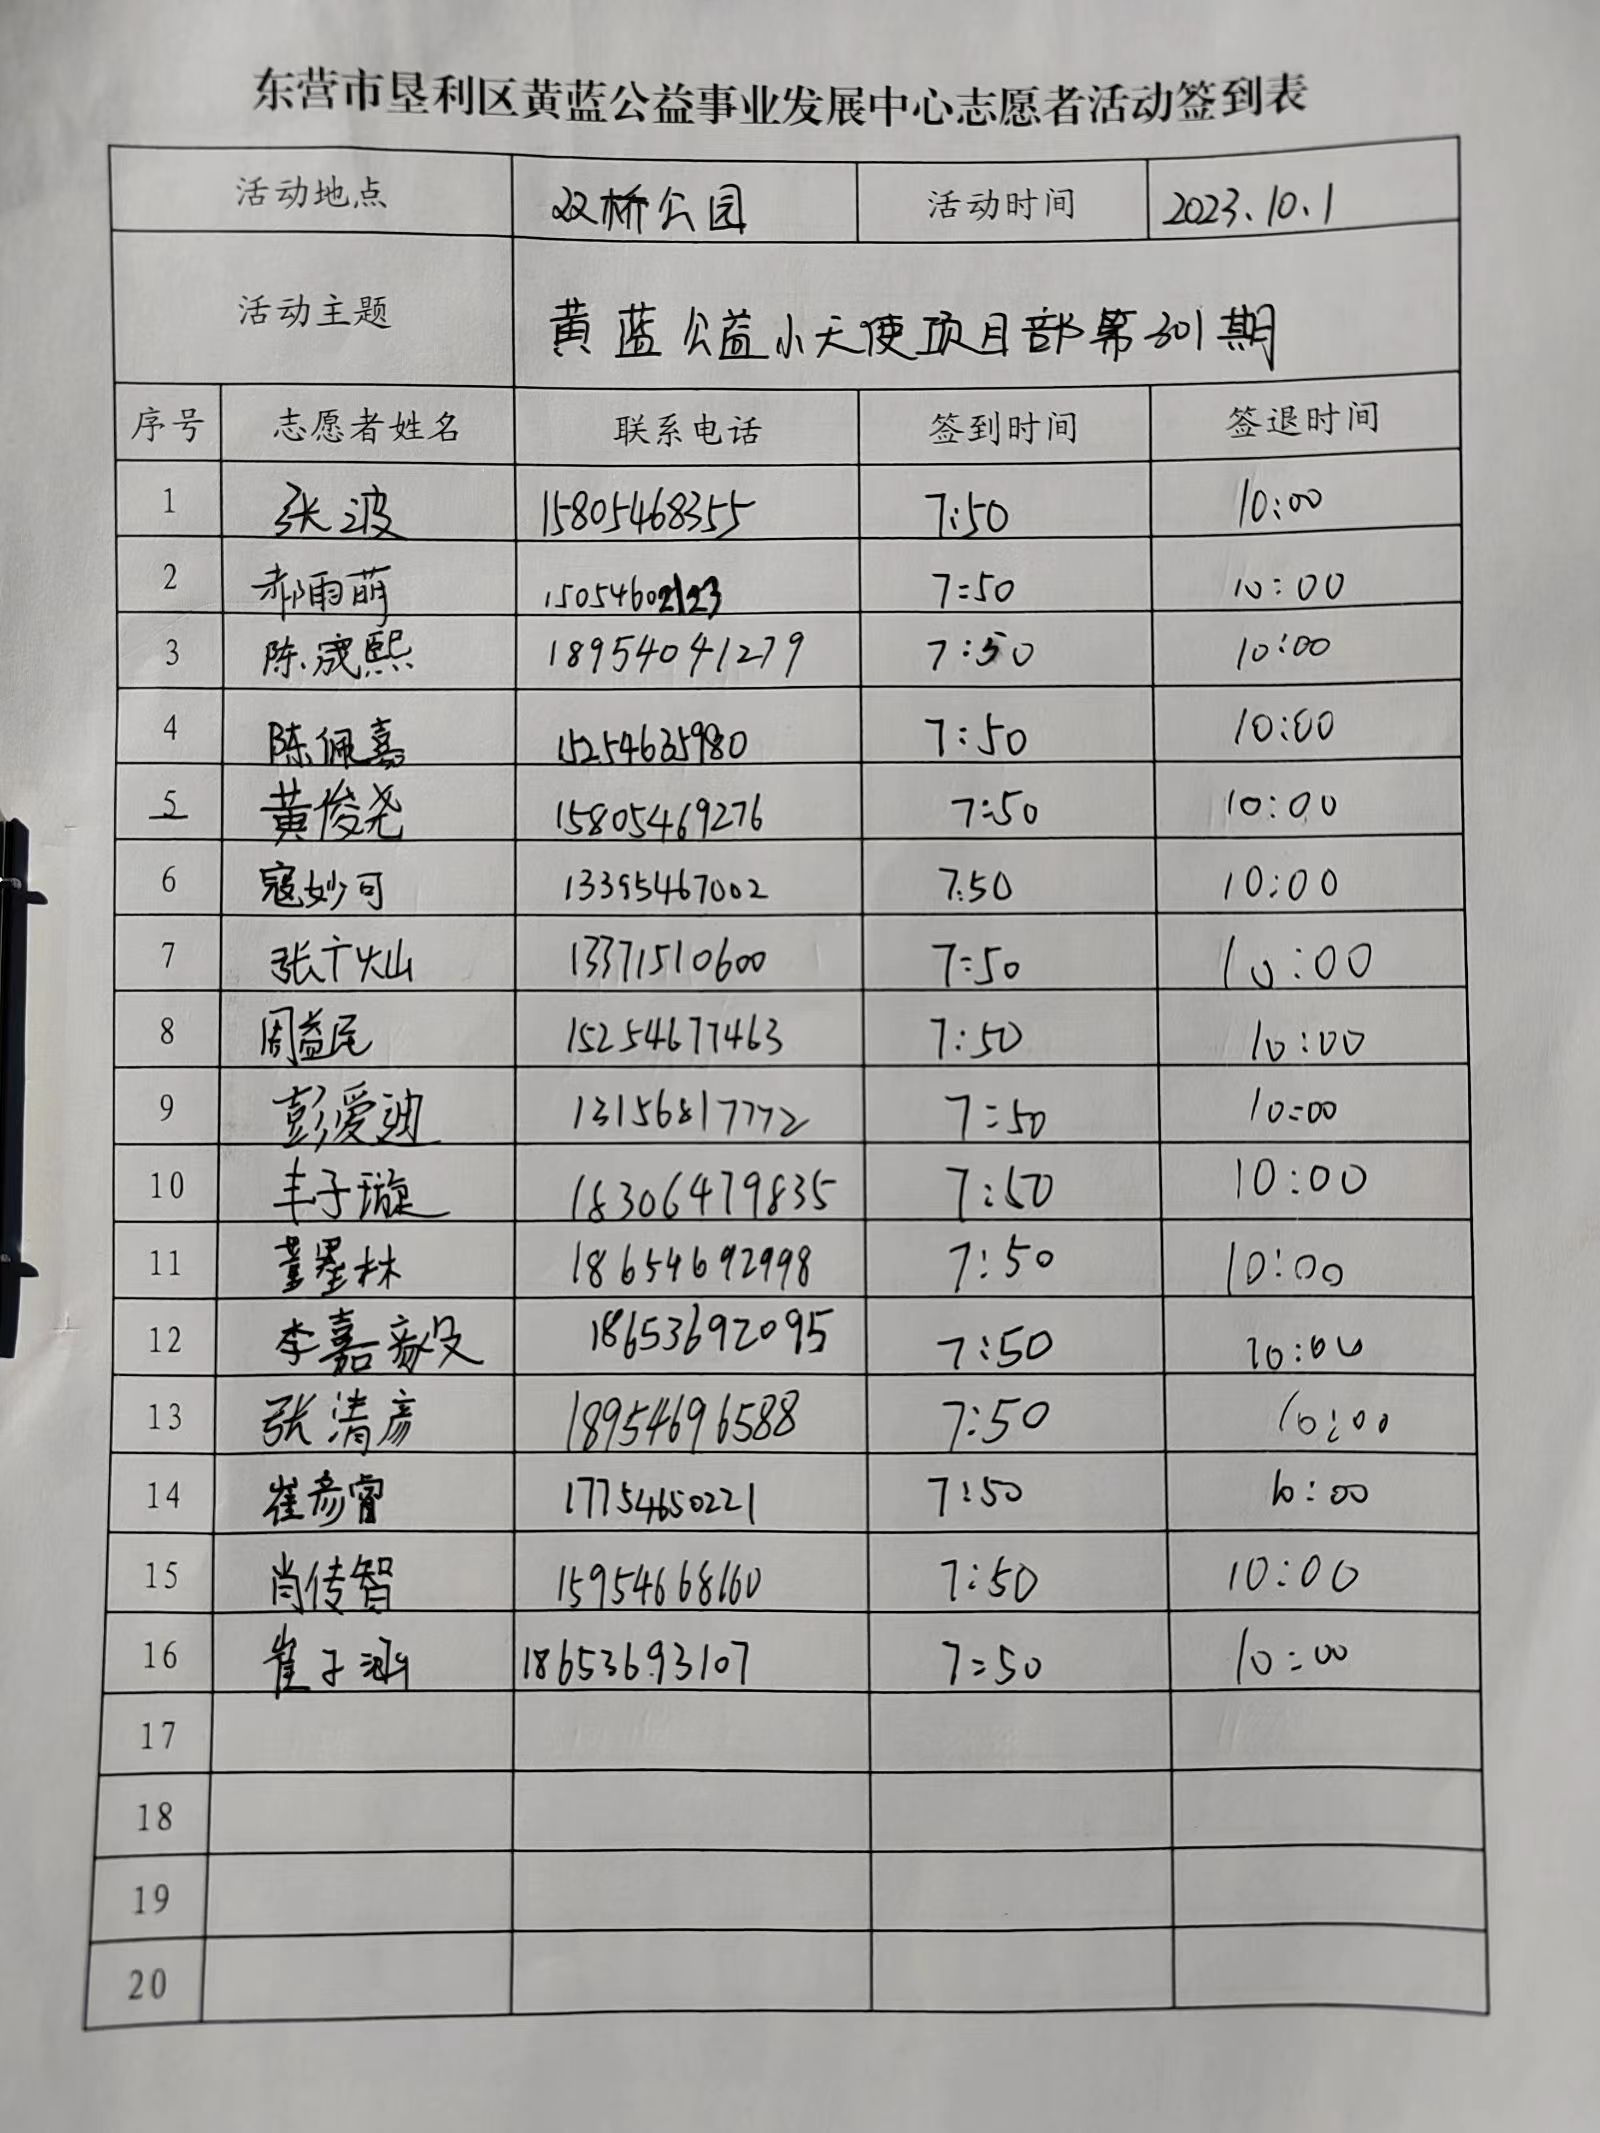 东营市垦利区黄蓝公益事业发展中心志愿者活动签到表
活动地点 双桥公园 活动时间 2023.10.1
活动主题 黄蓝公益小天使项目部第301期
序号 志愿者姓名 联系电话 签到时间 签退时间
1 张波 15805468355 7:50 10:00
2 郝雨萌 15054602123 7:50 10:00
3 陈宬熙 18954041279 7:50 10:00
4 陈佩嘉 15254635980 7:50 10:00
5 黄俊尧 15805469276 7:50 10:00
6 寇妙可 13395467002 7:50 10:00
7 张广灿 13371510600 7:50 10:00
8 周益民 15254677463 7:50 10:00
9 彭爱迪 13156817772 7:50 10:00
10 丰子璇 18306479835 7:50 10:00
11 董星林 18654692998 7:50 10:00
12 李嘉毅 18653692095 7:50 10:00
13 张清彦 18954696588 7:50 10:00
14 崔彦霄 17754650221 7:50 10:00
15 肖传智 15954668160 7:50 10:00
16 崔子涵 18653693107 7:50 10:00
17
18
19
20